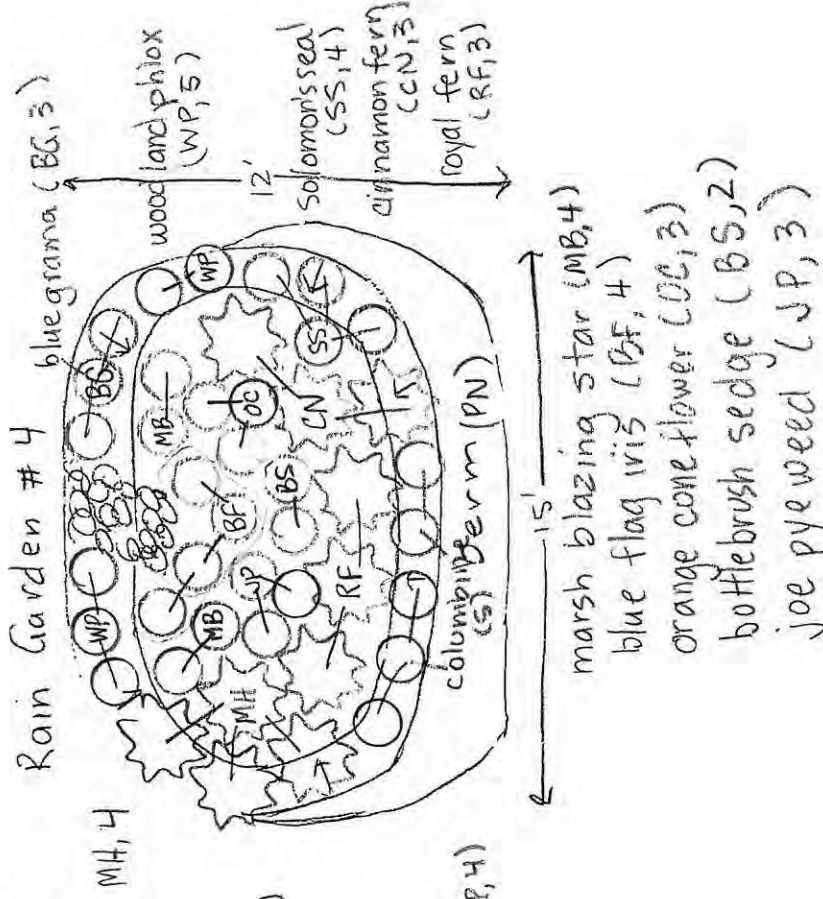 Rain Garden #4
MH, 4
blue grama (BG, 3)
woodland phlox
(WP, 5)
12'
Solomon's seal
(SS, 4)
cinnamon fern
(CN, 3)
royal fern
(RF, 3)
WP
BG
WP
MB
OC
BF
MB
BS
JP
SS
CN
MH
RF
columbine
(5)
berm (PN)
15'
marsh blazing star (MB, 4)
blue flag iris (BF, 4)
orange coneflower (OC, 3)
bottlebrush sedge (BS, 2)
joe pye weed (JP, 3)
)
P, 4)